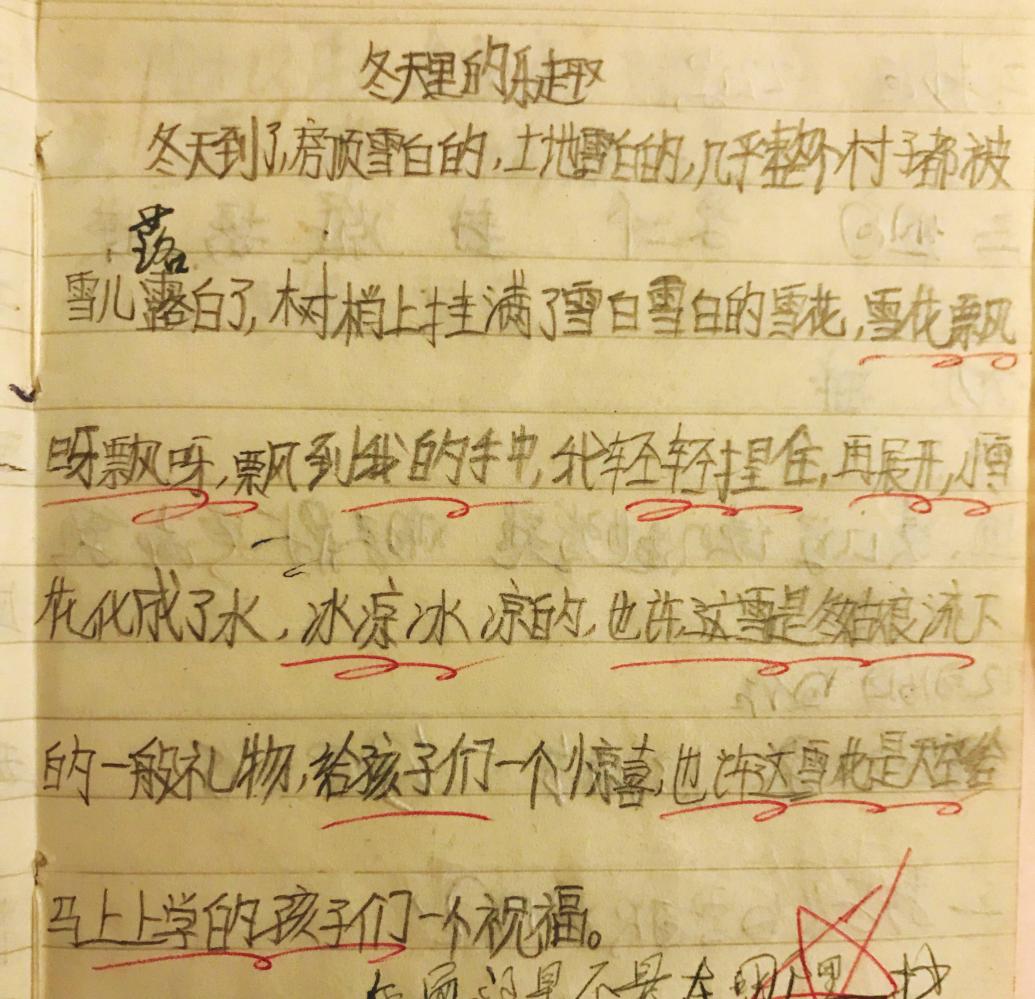 冬天里的乐趣
冬天到了,房顶雪白的,土地雪白的,几乎整个村子都被
落
雪儿露白了,树梢上挂满了雪白雪白的雪花,雪花飘
呀飘呀,飘到我的手中,我轻轻捏住,再展开,小雪
花化成了水,冰凉冰凉的,也许这雪是冬姑娘流下
的一般礼物,给孩子们一个惊喜,也许这雪花是天空给
马上上学的孩子们一个祝福。
是不是在